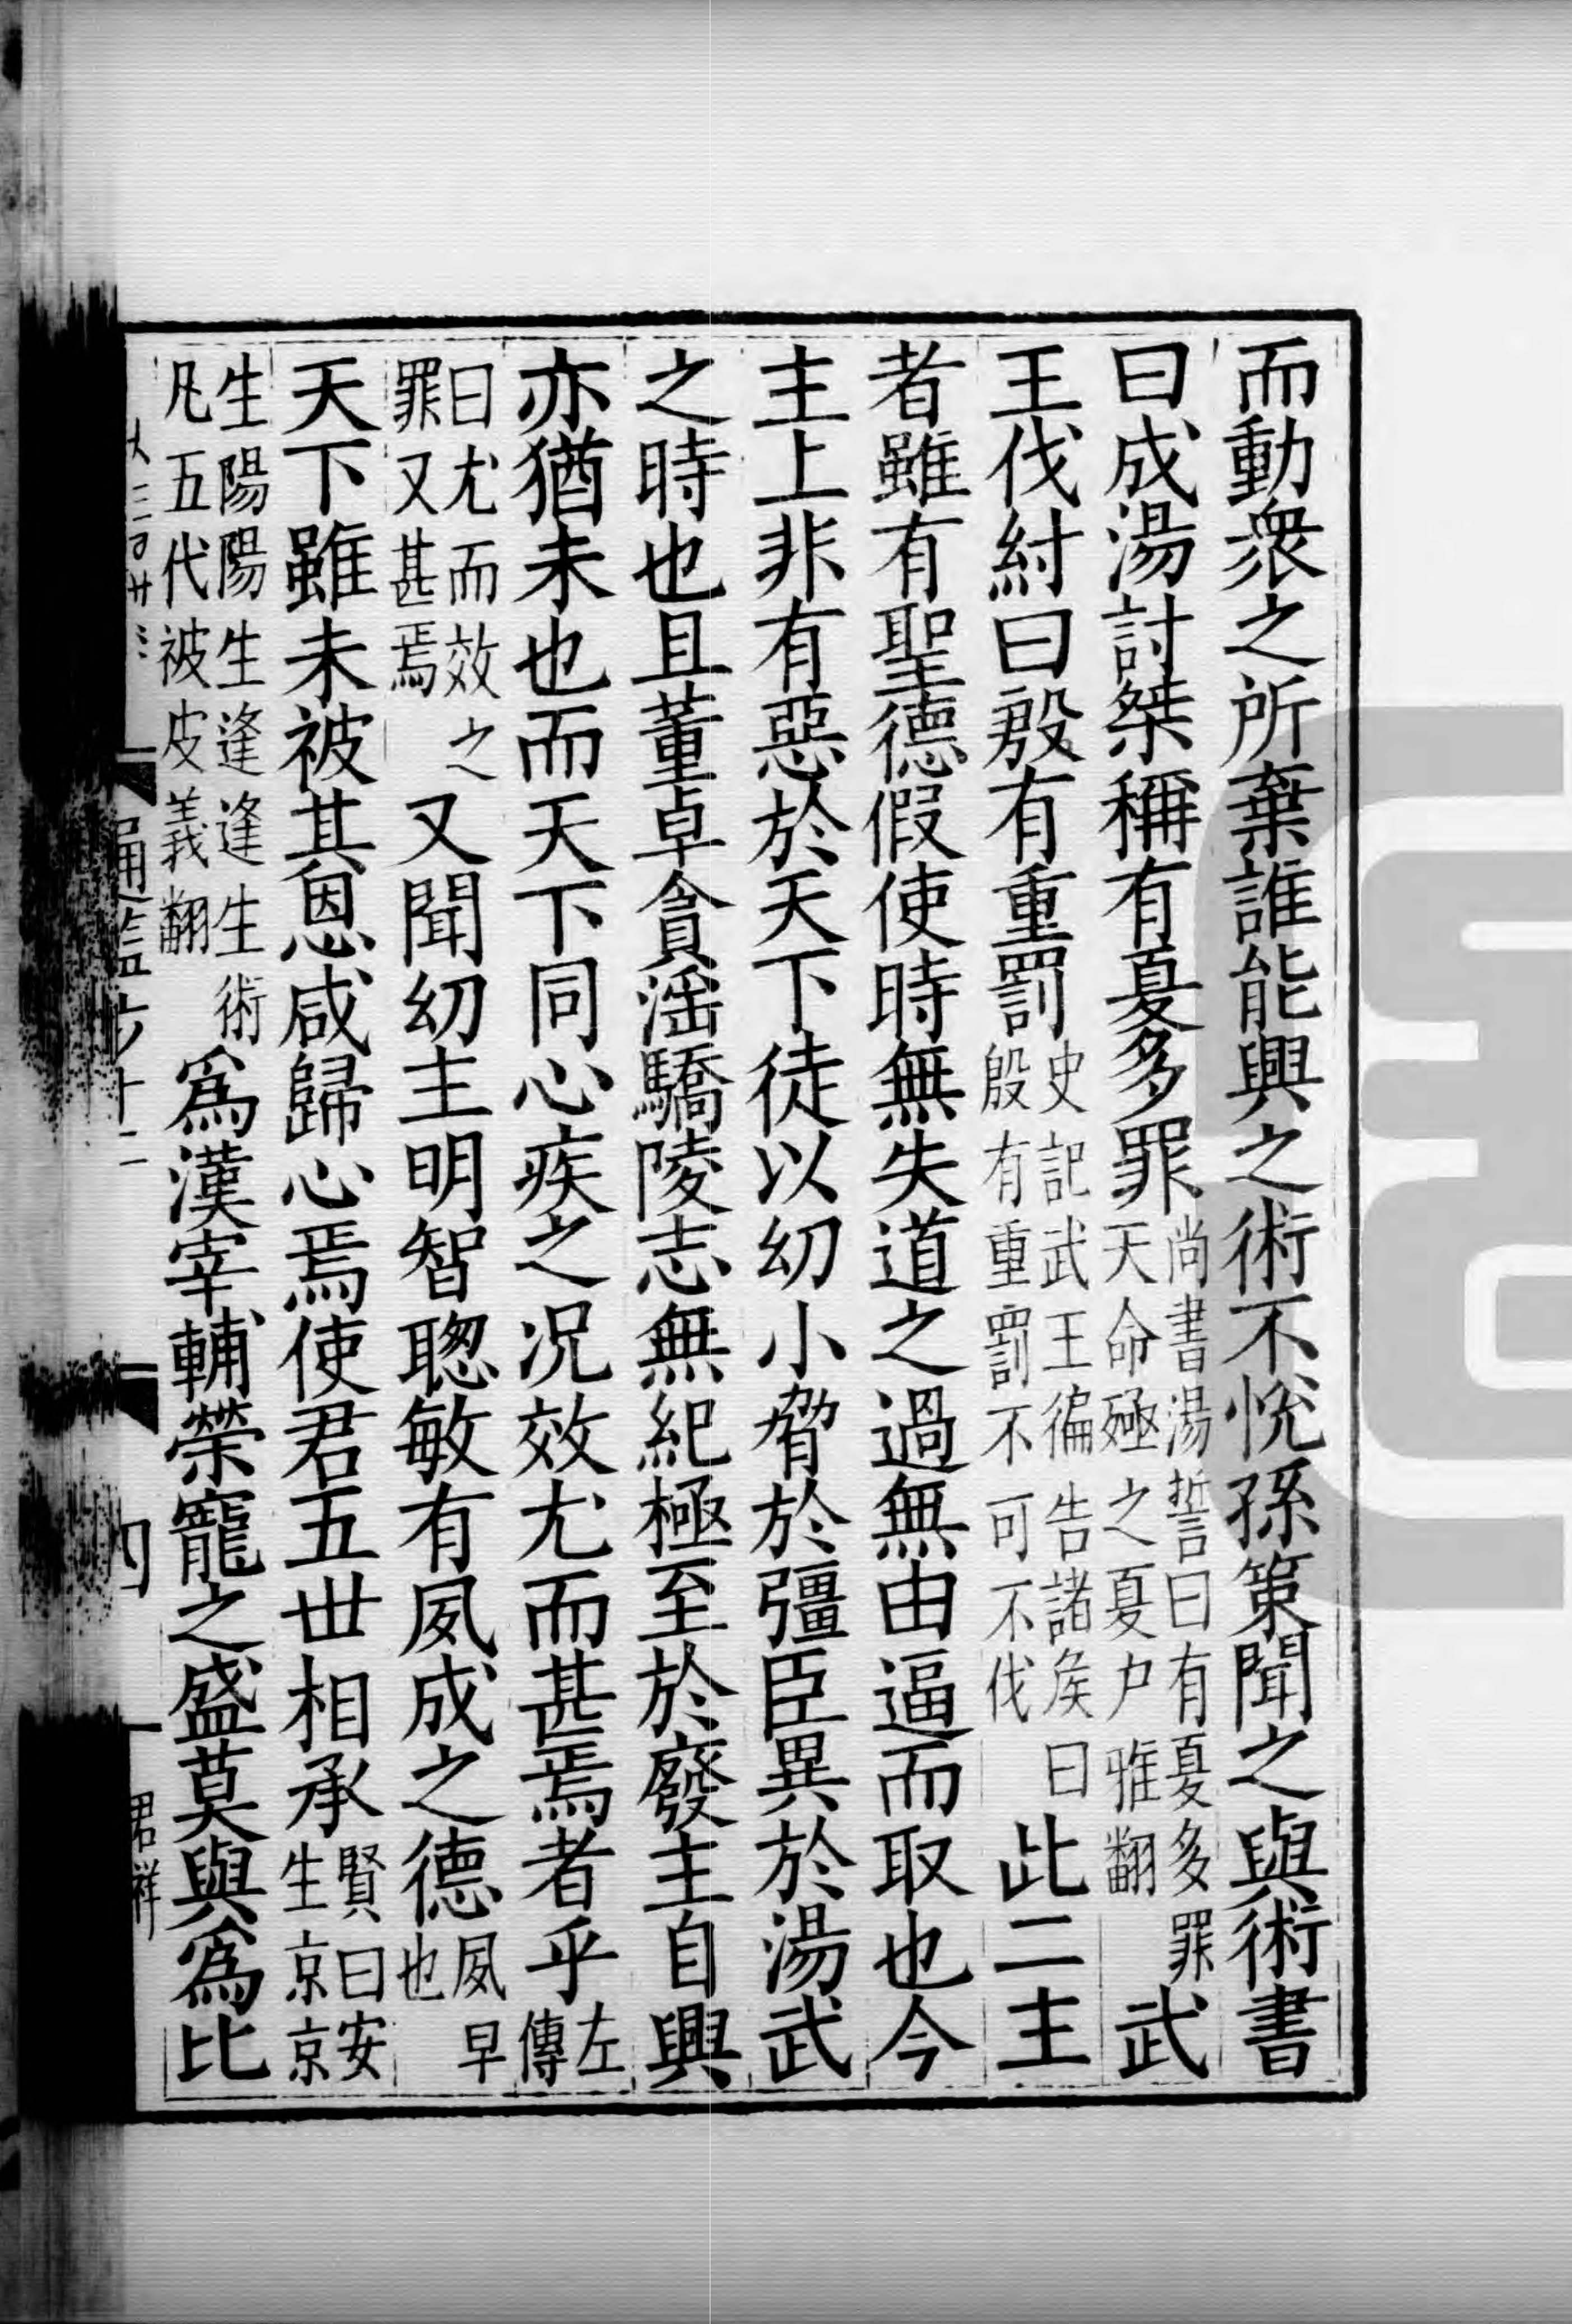 而動衆之所棄誰能興之術不悅孫策聞之與術書
曰成湯討桀稱有夏多罪尚書湯誓曰有夏多罪天命殛之夏户雅翻武
王伐紂曰殷有重罰史記武王徧告諸侯曰殷有重罰不可不伐此二主
者雖有聖德假使時無失道之過無由逼而取也今
主上非有惡於天下徒以幼小脅於彊臣異於湯武
之時也且董卓貪淫驕陵志無紀極至於廢主自興
亦猶未也而天下同心疾之况效尤而甚焉者乎左傳
曰尤而效之罪又甚焉又聞幼主明智聦敏有夙成之德夙早也
天下雖未被其恩咸歸心焉使君五世相承賢曰安生京京
生陽陽生逢逢生術凡五代被皮義翻爲漢宰輔榮寵之盛莫與爲比
通鑑六十二
四
君祥